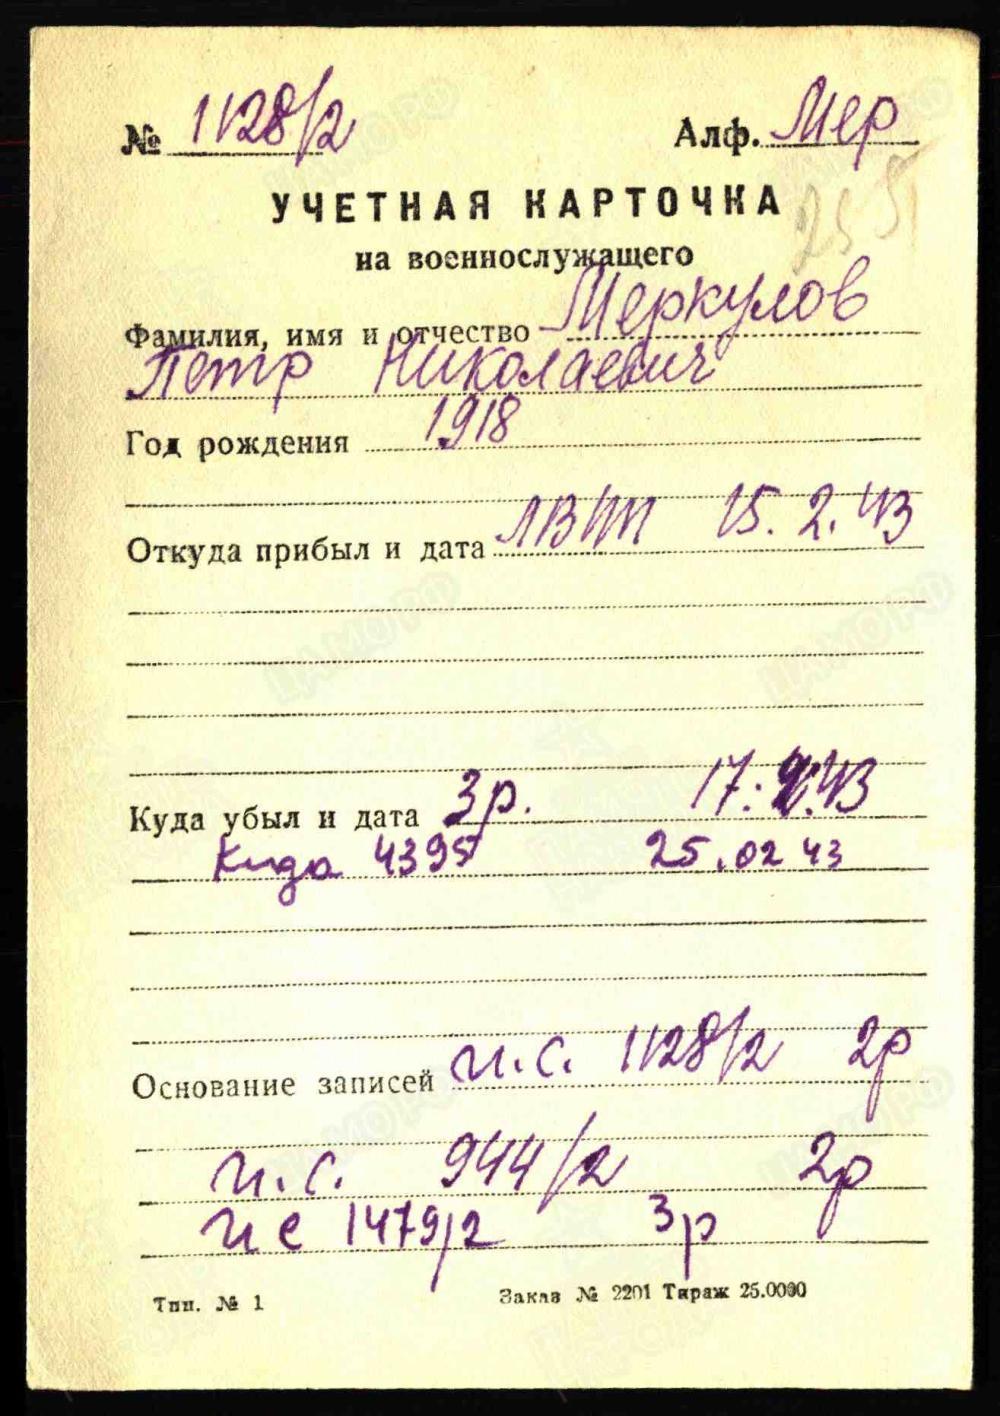 № 1128/2 Алф. Мер
УЧЕТНАЯ КАРТОЧКА
25 51
на военнослужащего
Фамилия, имя и отчество Меркулов
Петр Николаевич
Год рождения 1918
Откуда прибыл и дата ЛВПП 15.2.43
Куда убыл и дата 3р. 17.2.43
Куда 4395 25.02 43
Основание записей И.С. 1128/2 2р
И.С. 944/2 2р
И С 1479/2 3р
Тип. № 1 Заказ № 2201 Тираж 25.0000